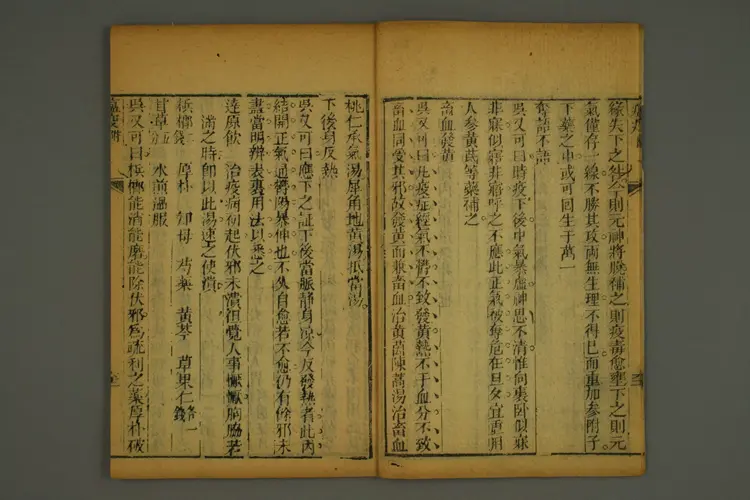 緣失下之咎今則元神將脫補之則疫毒愈壅下之則元
氣僅存一線不勝其攻兩無生理不得已而重加參附子
下藥之中或可回生于萬一
奪語不語
吳又可曰時疫下後中氣暴虛神思不清惟向裏臥似寐
非寐似寤非寤呼之不應此正氣被奪危在旦夕宜重用
人參黃芪等藥補之
畜血發黃
吳又可曰凡疫症經氣不懣不致發黃熱不于血分不致
畜血同受其邪故發黃而兼畜血治黃茵陳蒿湯治畜血
桃仁承氣湯犀角地黃湯抵當湯
下後身反熱
吳又可曰應下之証下後當脈靜身凉今反發熱者此內
結開正氣通鬱陽暴伸也不久自愈若不愈仍有餘邪未
盡當明辨表裏用法以悉之
達原飲 治疫病初起伏邪未潰但覺人事懨懨胸膈若
滿之時卽以此湯速之使潰
檳榔錢 厚朴 知母 芍藥 黃芩 草果仁各一錢
甘草五分 水煎溫服
吳又可曰檳榔能消能磨能除伏邪爲疏利之藥厚朴破